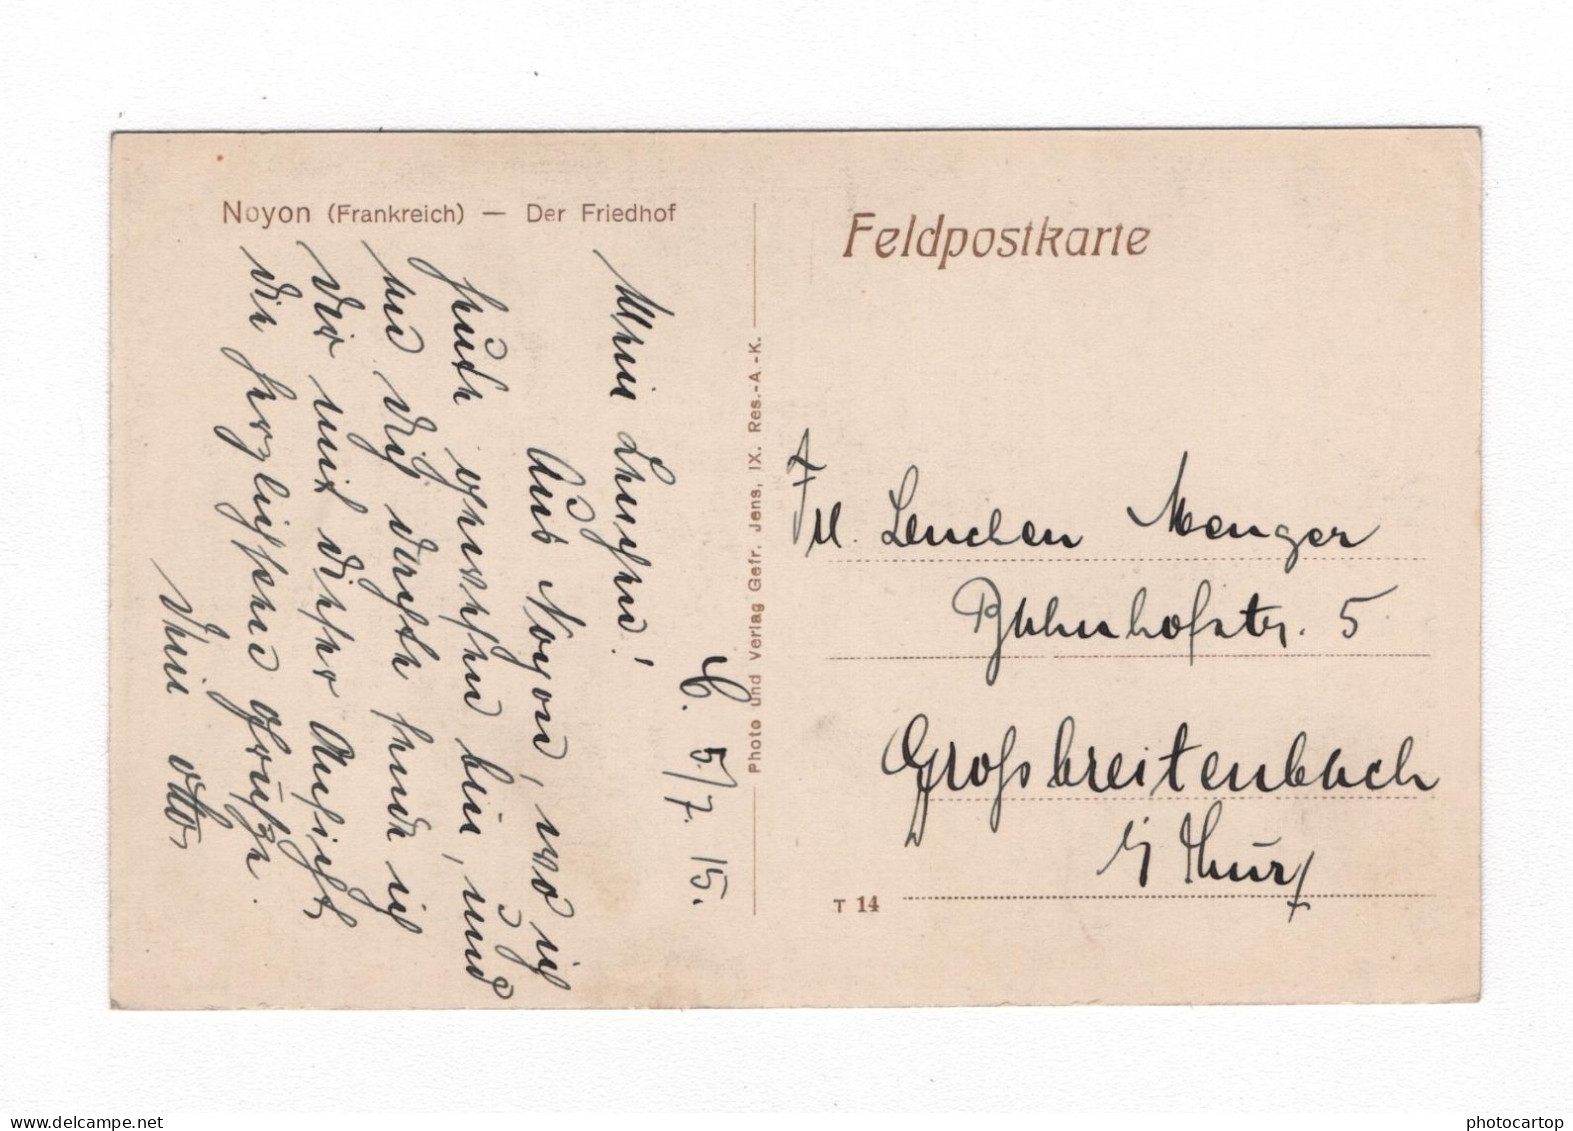 Noyon (Frankreich) — Der Friedhof
C. 5/7. 15.
Mein Lenchen!
Aus Noyon, wo ich
heute gewesen bin, und
an Dich dachte sende ich
Dir mit dieser Ansicht
die herzlichsten Grüße.
Dein Otto
Photo und Verlag Gefr. Jens, IX. Res.-A.-K.
Feldpostkarte
Frl. Lenchen Menger
Bahnhofstr. 5
Großbreitenbach
i/ Thür
T 14
photocartop
www.delcampe.net